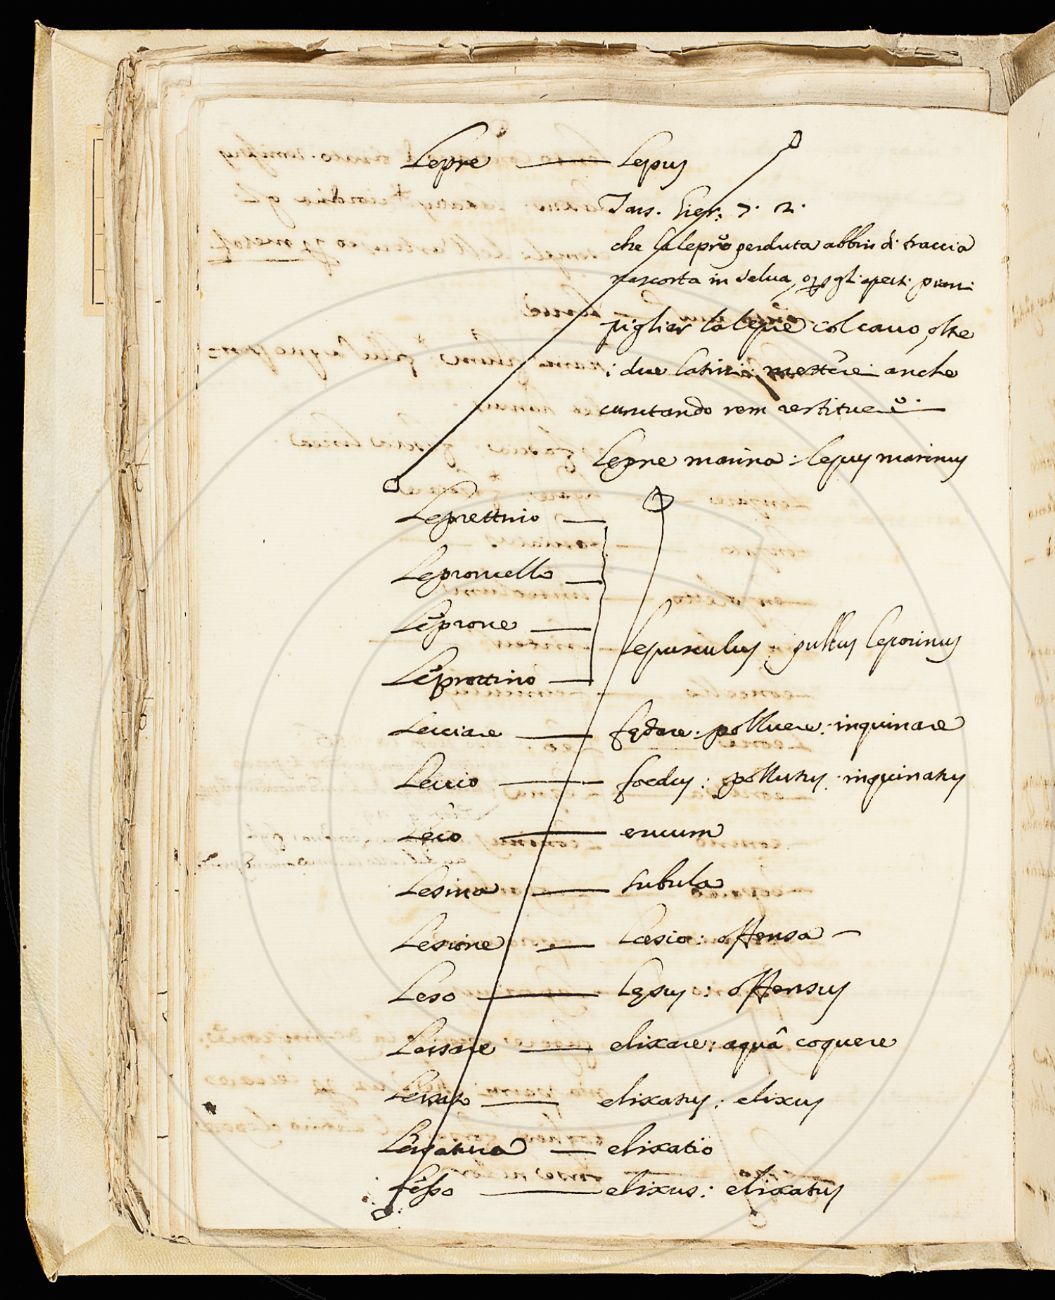 Lepre — Lepus
Tass. Gier. 7. 2.
che la lepre perduta abbin di traccia
nascosta in selva, gli aperti piani
pigliar la lepre col carro, oltre
i due latini mettere anche
cunctando rem restituere
Lepre marina: lepus marinus
Leprettino —
Leproncello —
Leprone —
Leprottino —
Lepusculus: pullus leporinus
Lerciare — fędare: polluere: inquinare
Lercio — foedus: pollutus: inquinatus
Lero — ervum
Lesina — subula
Lesione — Læsio: offensa —
Leso — lęsus: offensus
Lessare — elixare: aquâ coquere
Lessato — elixatus: elixus
Lessatura — elixatio
Lesso — elixus: elixatus